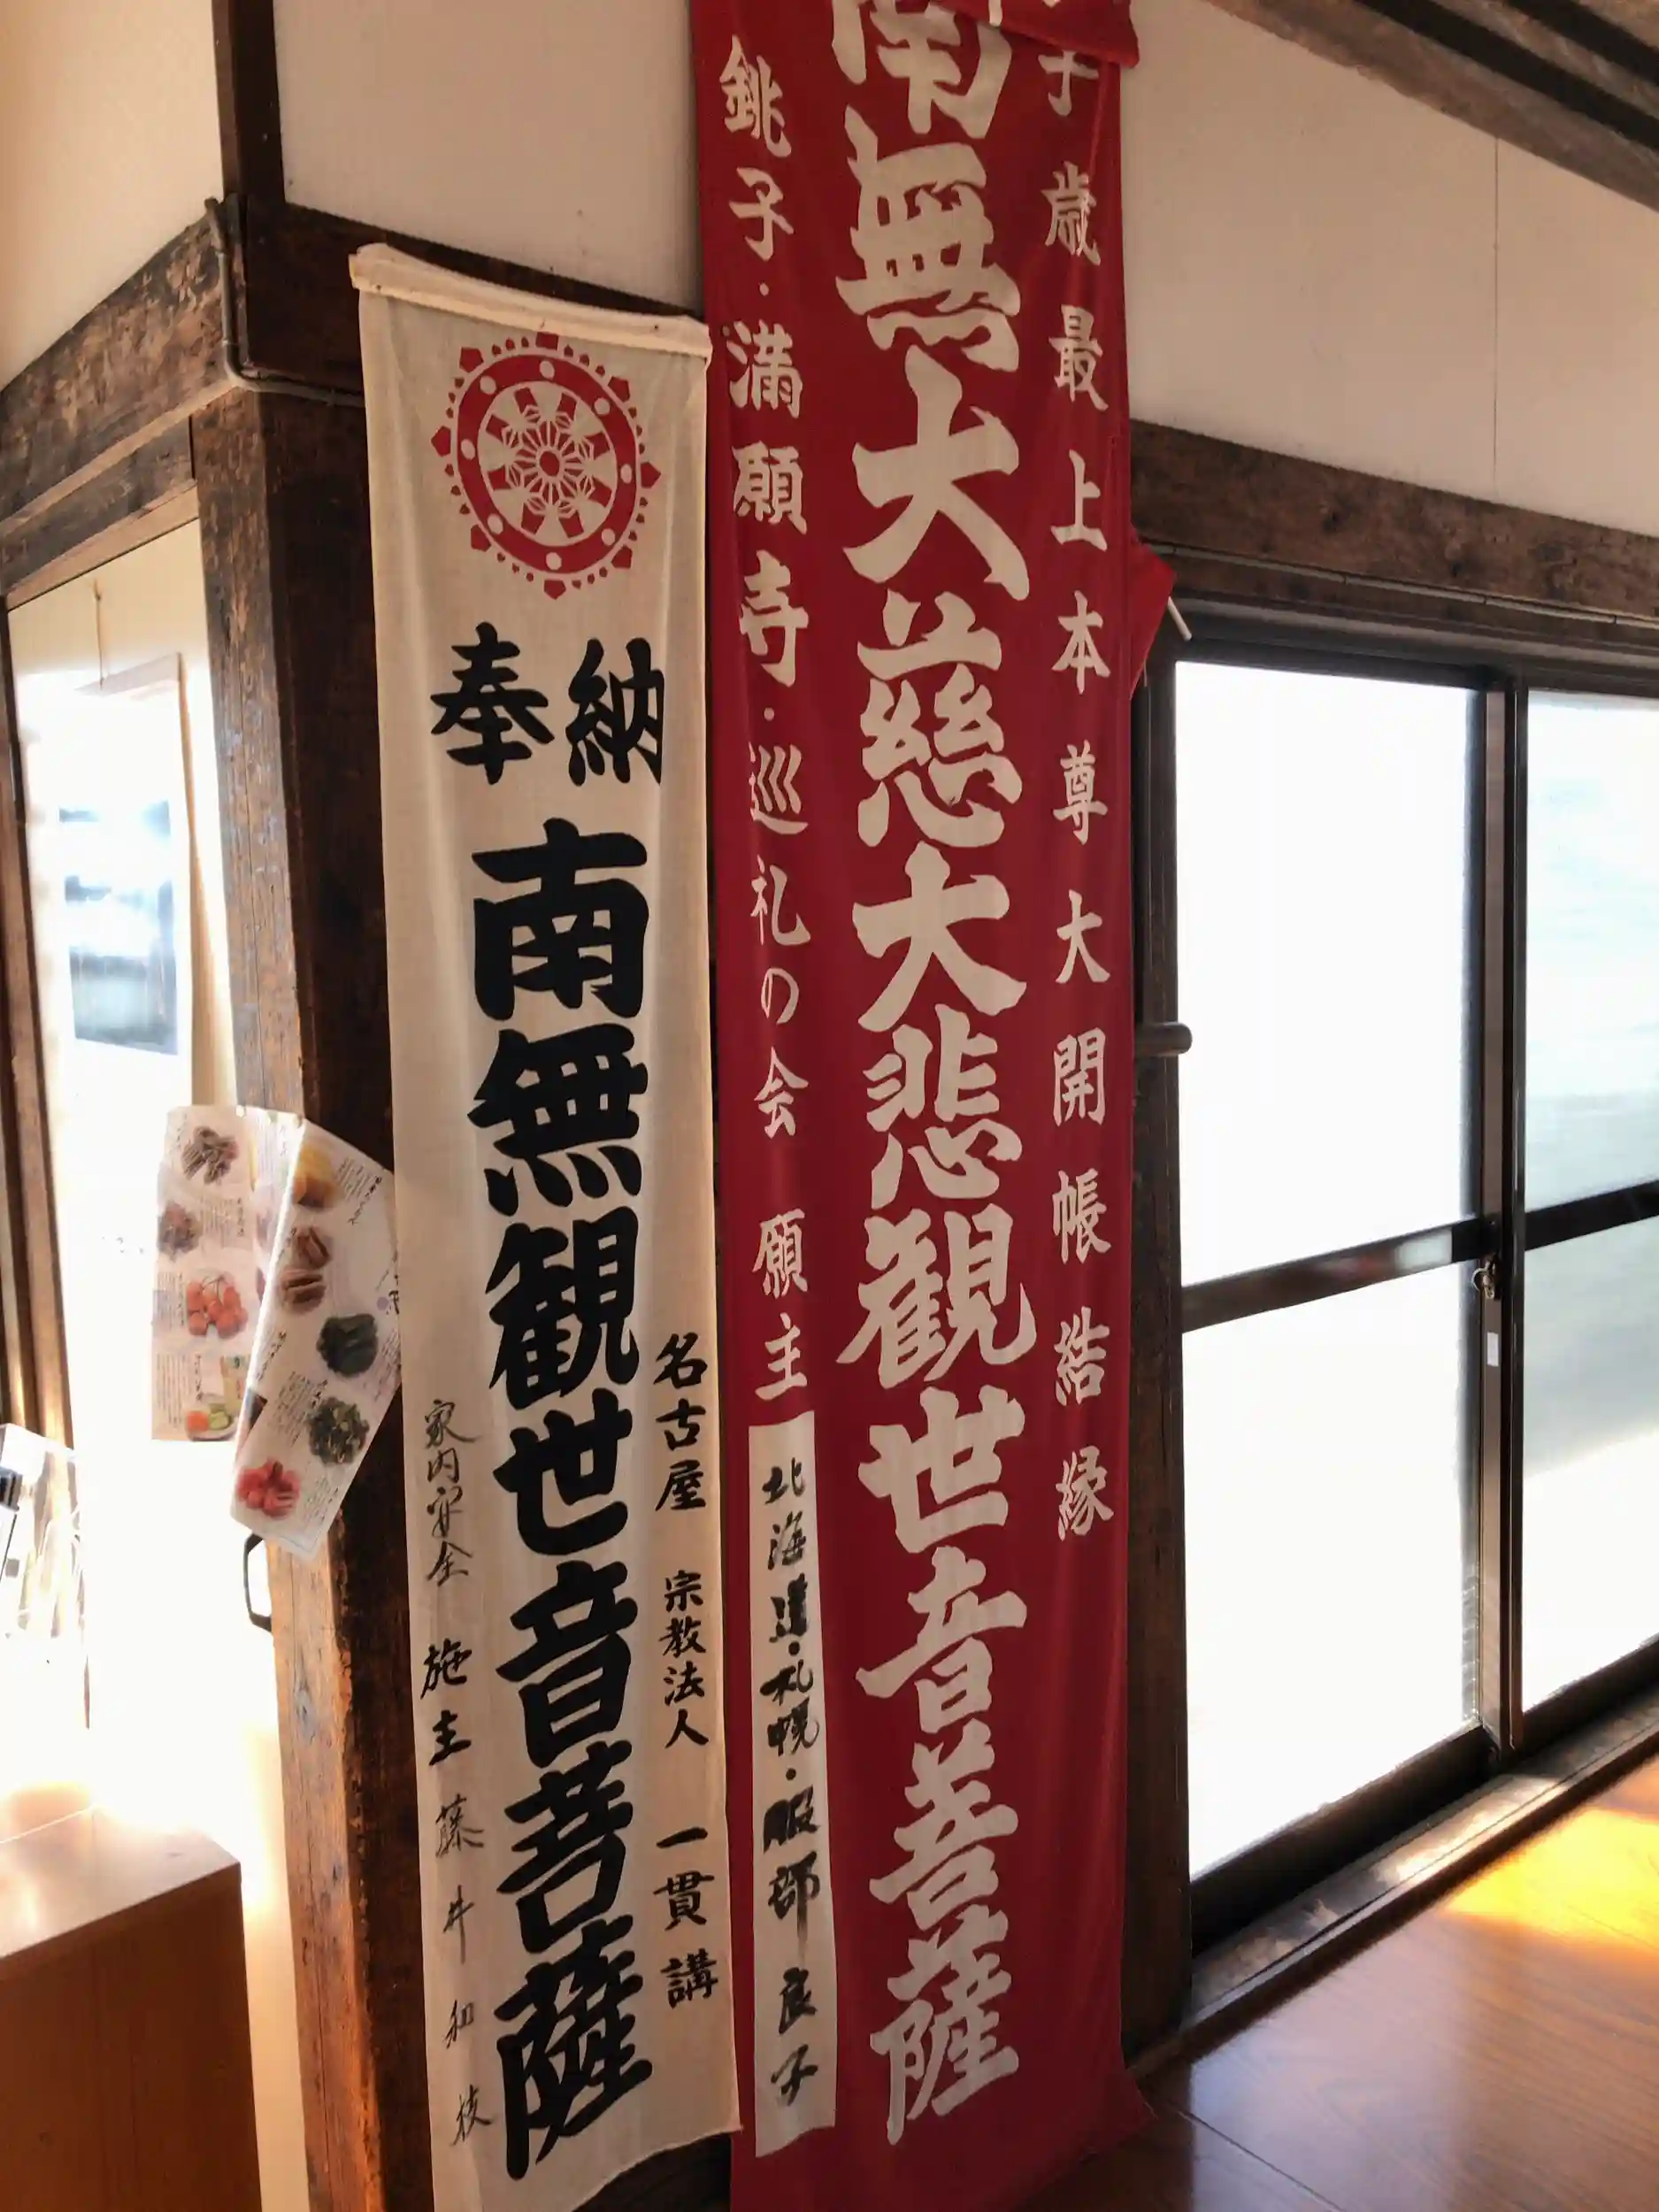 子歳最上本尊大開帳結縁
南無大慈大悲観世音菩薩
銚子・満願寺・巡礼の会 願主
北海道・札幌・服部良子
奉納
南無観世音菩薩
名古屋 宗教法人 一貫講
家内安全 施主 藤井和枝